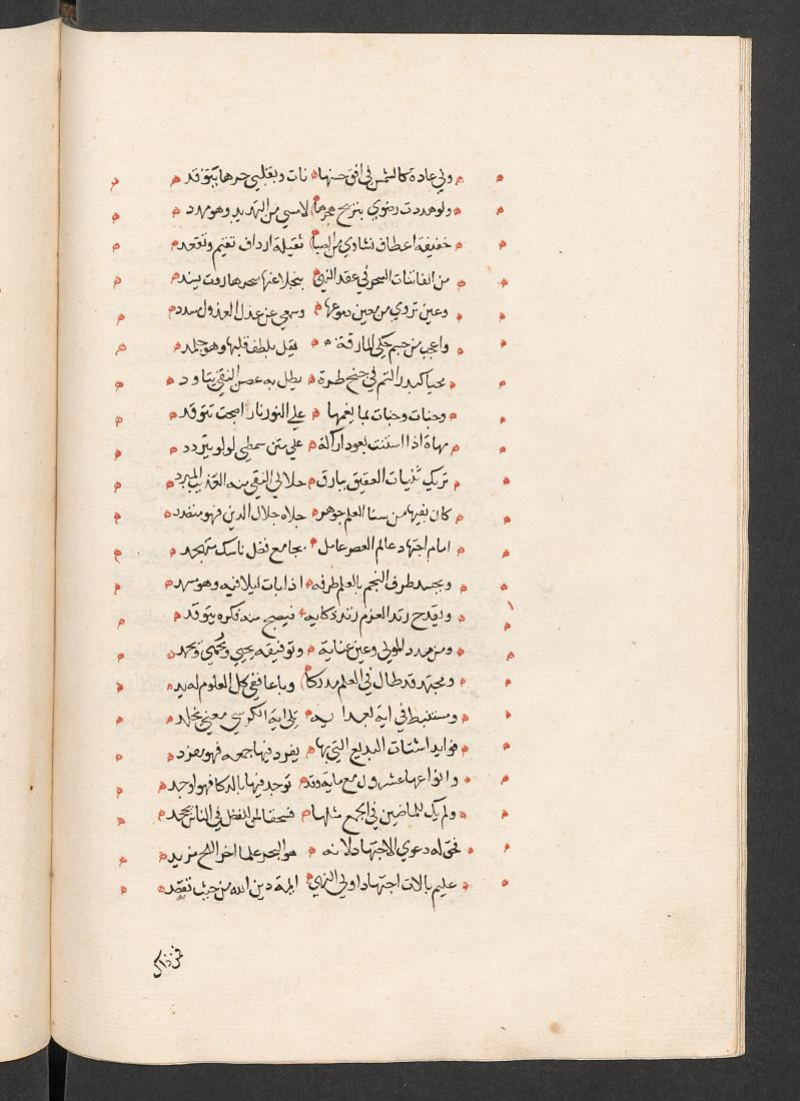 ولي غادة كالشمس في افق حسنها نات وبقلبي حرها يتوقد
ولو هددت رضوي بتريح هجرها لامسي من التهديد وهو مهدد
خفيفة اعطاف نشاوي من الصبا ثقيلة ارداف تقيم وتقعد
من الفاتنات السحر في عقد النهي بنجلا عنها سحر هاروت يسند
وعين تروي من معين دموعها وسمعي عن عذل العذول مسدد
واعجب من جسم حكي الما رقة يقل بلطف قلبها وهو جلمد
محيا كبدر التم في جنح طرة يطل به غصن النقي يتاود
وجنات وجنات بما يغمها علي النور نار اصبحت تتوقد
مهاة اذا استنت بعود اراكة علي متن سمطي لولو يتردد
تريك ثنيات العقيق ببارق حلالي النقي منه العذيب المبرد
كان بفيها من سنا العلم جوهر جلاه جلال الدين فهو منضد
امام اجتهاد عالم العصر عامل بجامع فضل ناسك متهجد
ويحسد طرف النجم بالعلم طرفه اذا بات ليلا فيه وهو مسهد
ويقدح زند العزم زند ذكايه فيصبح منه فكره يتوقد
ومن مدد المولي وعين عناية وتوفيقه يحيي ويحمي ويحمد
ومجتهد قد طال في العلم مدركا وباعا ففي كل العلوم له يد
ومستنبط في اية بعد اية تلي اية الكرسي معني مخلد
فوايد اشتات البديع التي بها يفرد فيها جمعه فهو مفرد
وانواعها عشرون مع ماية وقد توحد فيها بالذكا فهو اوحد
ولم يك للماضين في الجمع مثلها فسحقا لمن للفضل في الناس يجحد
فحق له دعوي الاجتهاد لانه هو البحر علما اخر اللج مزبد
عليم بالات اجتهاد اولي النهي ايمة دين الله من حيث تقصد
فمن ذاك